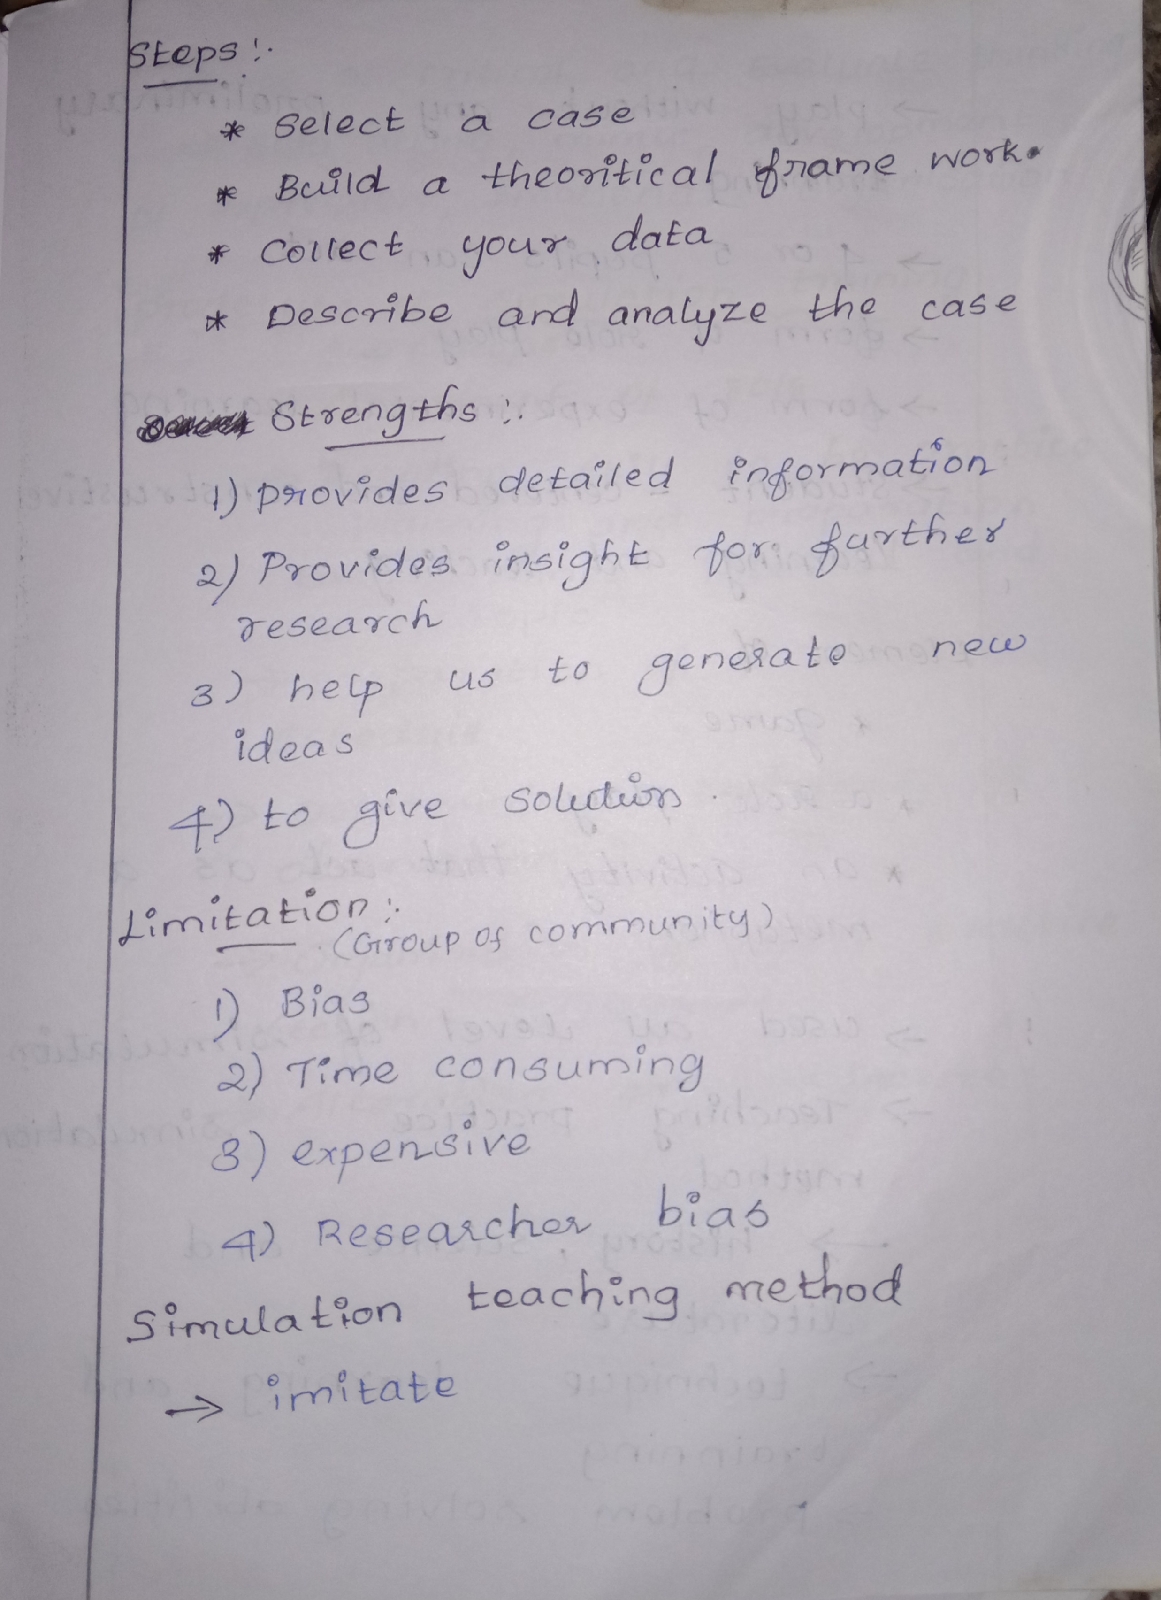 Steps :-
* Select a case
* Build a theoritical frame work.
* Collect your data
* Describe and analyze the case
Strengths :-
1) provides detailed information
2) Provides insight for further
research
3) help us to generate new
ideas
4) to give solution.
Limitation :-
(Group of community)
1) Bias
2) Time consuming
3) expensive
4) Researcher bias
Simulation teaching method
→ imitate